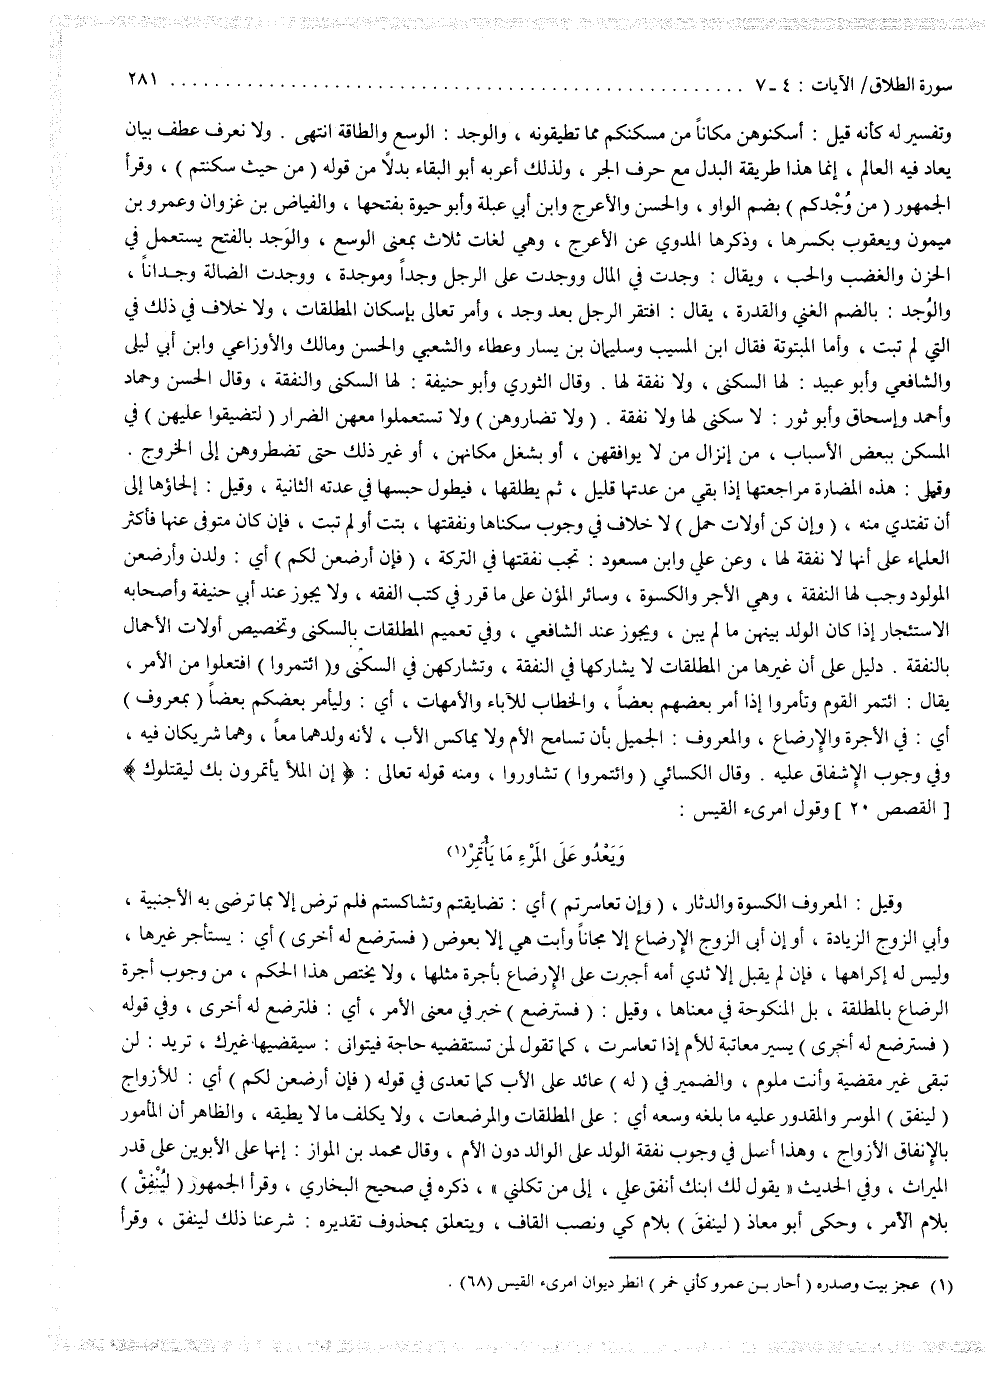 سورة الطلاق/ الآيات : ٤ ـ ٧ . . . . . . . . . . . . . . . . . . . . . . . . . . . . . . . . . . . . . . . . . . . . ٢٨١
وتفسير له كأنه قيل : أسكنوهن مكاناً من مسكنكم مما تطيقونه ، والوجد : الوسع والطاقة انتهى . ولا نعرف عطف بيان
يعاد فيه العالم ، إنما هذا طريقة البدل مع حرف الجر ، ولذلك أعربه أبو البقاء بدلاً من قوله ( من حيث سكنتم ) ، وقرأ
الجمهور ( من وُجْدكم ) بضم الواو ، والحسن والأعرج وابن أبي عبلة وأبو حيوة بفتحها ، والفياض بن غزوان وعمرو بن
ميمون ويعقوب بكسرها ، وذكرها المدوي عن الأعرج ، وهي لغات ثلاث بمعنى الوسع ، والوَجد بالفتح يستعمل في
الحزن والغضب والحب ، ويقال : وجدت في المال ووجدت على الرجل وجداً وموجدة ، ووجدت الضالة وجداناً ،
والوُجد : بالضم الغني والقدرة ، يقال : افتقر الرجل بعد وجد ، وأمر تعالى بإسكان المطلقات ، ولا خلاف في ذلك في
التي لم تبت ، وأما المبتوتة فقال ابن المسيب وسليمان بن يسار وعطاء والشعبي والحسن ومالك والأوزاعي وابن أبي ليلى
والشافعي وأبو عبيد : لها السكنى ، ولا نفقة لها . وقال الثوري وأبو حنيفة : لها السكنى والنفقة ، وقال الحسن وحماد
وأحمد وإسحاق وأبو ثور : لا سكنى لها ولا نفقة . ( ولا تضاروهن ) ولا تستعملوا معهن الضرار ( لتضيقوا عليهن ) في
المسكن ببعض الأسباب ، من إنزال من لا يوافقهن ، أو بشغل مكانهن ، أو غير ذلك حتى تضطروهن إلى الخروج .
وقيل : هذه المضارة مراجعتها إذا بقي من عدتها قليل ، ثم يطلقها ، فيطول حبسها في عدته الثانية ، وقيل : إلحاؤها إلى
أن تفتدي منه ، ( وإن كن أولات حمل ) لا خلاف في وجوب سكناها ونفقتها ، بتت أو لم تبت ، فإن كان متوفى عنها فأكثر
العلماء على أنها لا نفقة لها ، وعن علي وابن مسعود : تجب نفقتها في التركة ، ( فإن أرضعن لكم ) أي : ولدن وأرضعن
المولود وجب لها النفقة ، وهي الأجر والكسوة ، وسائر المؤن على ما قرر في كتب الفقه ، ولا يجوز عند أبي حنيفة وأصحابه
الاستئجار إذا كان الولد بينهن ما لم يبن ، ويجوز عند الشافعي ، وفي تعميم المطلقات بالسكنى وتخصيص أولات الأحمال
بالنفقة . دليل على أن غيرها من المطلقات لا يشاركها في النفقة ، وتشاركهن في السكنى و( ائتمروا ) افتعلوا من الأمر ،
يقال : ائتمر القوم وتأمروا إذا أمر بعضهم بعضاً ، والخطاب للآباء والأمهات ، أي : وليأمر بعضكم بعضاً ( بمعروف )
أي : في الأجرة والإرضاع ، والمعروف : الجميل بأن تسامح الأم ولا يماكس الأب ، لأنه ولدهما معاً ، وهما شريكان فيه ،
وفي وجوب الإشفاق عليه . وقال الكسائي ( وائتمروا ) تشاوروا ، ومنه قوله تعالى : ﴿ إن الملأ يأتمرون بك ليقتلوك ﴾
[ القصص ٢٠ ] وقول امرىء القيس :
وَيَعْدُو عَلَى المَرْءِ مَا يَأْتَمِرْ(١)
وقيل : المعروف الكسوة والدثار ، ( وإن تعاسرتم ) أي : تضايقتم وتشاكستم فلم ترض إلا بما ترضى به الأجنبية ،
وأبي الزوج الزيادة ، أو إن أبى الزوج الإرضاع إلا مجاناً وأبت هي إلا بعوض ( فسترضع له أخرى ) أي : يستأجر غيرها ،
وليس له إكراهها ، فإن لم يقبل إلا ثدي أمه أجبرت على الإرضاع بأجرة مثلها ، ولا يختص هذا الحكم ، من وجوب أجرة
الرضاع بالمطلقة ، بل المنكوحة في معناها ، وقيل : ( فسترضع ) خبر في معنى الأمر ، أي : فلترضع له أخرى ، وفي قوله
( فسترضع له أخرى ) يسير معاتبة للأم إذا تعاسرت ، كما تقول لمن تستقضيه حاجة فيتوانى : سيقضيها غيرك ، تريد : لن
تبقى غير مقضية وأنت ملوم ، والضمير في ( له ) عائد على الأب كما تعدى في قوله ( فإن أرضعن لكم ) أي : للأزواج
( لينفق ) الموسر والمقدور عليه ما بلغه وسعه أي : على المطلقات والمرضعات ، ولا يكلف ما لا يطيقه ، والظاهر أن المأمور
بالإنفاق الأزواج ، وهذا أصل في وجوب نفقة الولد على الوالد دون الأم ، وقال محمد بن المواز : إنها على الأبوين على قدر
الميراث ، وفي الحديث « يقول لك ابنك أنفق علي ، إلى من تكلني » ، ذكره في صحيح البخاري ، وقرأ الجمهور ( لِيُنْفِقْ )
بلام الأمر ، وحكى أبو معاذ ( لينفقَ ) بلام كي ونصب القاف ، ويتعلق بمحذوف تقديره : شرعنا ذلك لينفق ، وقرأ
(١) عجز بيت وصدره ( أحار بن عمرو كأني خمر ) انظر ديوان امرىء القيس (٦٨) .